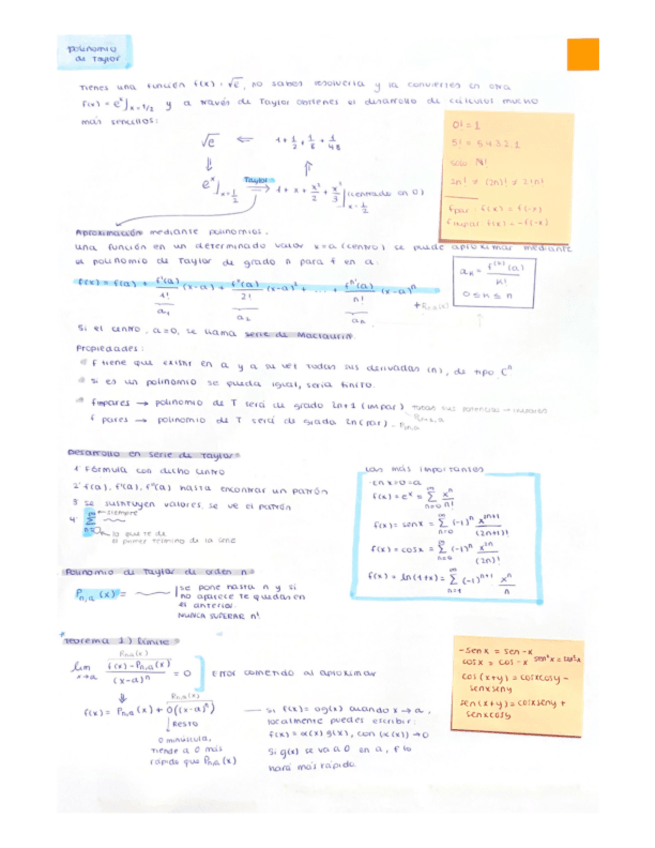 Polinomio
de Taylor
Tienes una función f(x) = √e, no sabes resolverla y la conviertes en otra
f(x) = e^x]x=1/2 y a través de Taylor obtienes el desarrollo de cálculos mucho
más sencillos:
√e ⇐ 1 + 1/2 + 1/8 + 1/48
⇓ ⇑
e^x]x=1/2 Taylor ⟹ 1 + x + x²/2 + x³/3 | (centrado en 0) x=1/2
0! = 1
5! = 5·4·3·2·1
solo N!
2n! ≠ (2n)! ≠ 2!n!
f par: f(x) = f(-x)
f impar: f(x) = -f(-x)
Aproximación mediante polinomios.
Una función en un determinado valor x=a (centro) se puede aproximar mediante
el polinomio de Taylor de grado n para f en a:
f(x) = f(a) + f'(a)/1! (x-a) + f''(a)/2! (x-a)² + ... + f^n(a)/n! (x-a)^n
a1 a2 an + Rn,a(x)
an = f^(n)(a)/n!
0 ≤ n ≤ n
Si el centro, a=0, se llama serie de Maclaurin.
Propiedades:
f tiene que existir en a y a su vez todas sus derivadas (n), de tipo C^n
Si es un polinomio se queda igual, sería finito.
f impares → polinomio de T será de grado 2n+1 (impar) todas sus potencias → impares
f pares → polinomio de T será de grado 2n (par)
Desarrollo en serie de Taylor
1º Fórmula con dicho centro
2º f(a), f'(a), f''(a) hasta encontrar un patrón
3º se sustituyen valores, se ve el patrón
4º ← siempre
n=0 lo que te da
el primer término de la serie
Los más importantes
en x=0=a
f(x) = e^x = ∑ n=0 ∞ x^n/n!
f(x) = senx = ∑ n=0 ∞ (-1)^n x^2n+1/(2n+1)!
f(x) = cosx = ∑ n=0 ∞ (-1)^n x^2n/(2n)!
f(x) = ln(1+x) = ∑ n=1 ∞ (-1)^n+1 x^n/n
Polinomio de Taylor de orden n
Pn,a (x) = se pone hasta n y si
no aparece te quedas en
el anterior.
NUNCA SUPERAR n!
Teorema 1) límite
Rn,a(x)
lim x→a f(x) - Pn,a(x)/(x-a)^n = 0 Error cometido al aproximar
⇓ Rn,a(x)
f(x) = Pn,a(x) + o((x-a)^n)
↓ RESTO
o minúscula,
tiende a 0 más
rápido que Pn,a(x)
Si f(x) = og(x) cuando x → a,
localmente puedes escribir:
f(x) = α(x) g(x), con (α(x)) → 0
Si g(x) se va a 0 en a, f lo
hará más rápido.
-senx = sen-x
cosx = cos-x
cos(x+y) = cosxcosy -
senxseny
sen(x+y) = cosxseny +
senxcosy